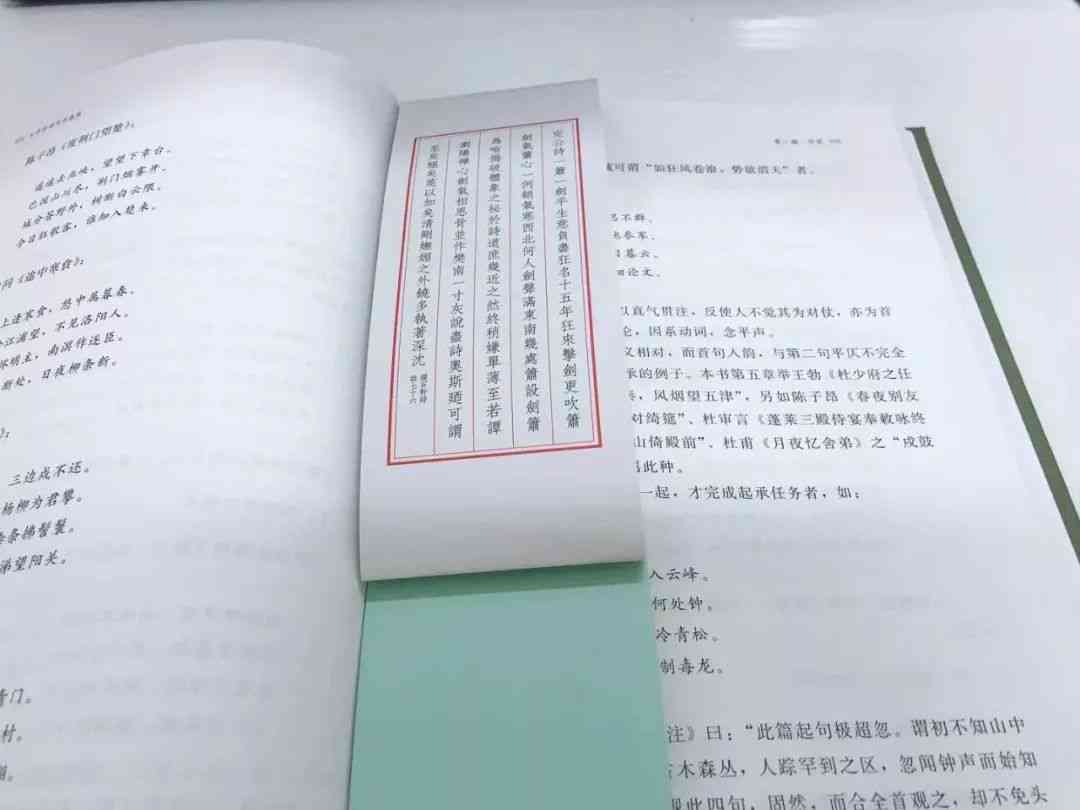 陈子昂《度荆门望楚》：
遥遥去巫峡，望望下章台。
巴国山川尽，荆门烟雾开。
城分苍野外，树断白云隈。
今日狂歌客，谁知入楚来。
问《途中寒食》：
上逢寒食，愁中属暮春。
江浦望，不见洛阳人。
明主，南溟作逐臣。
断处，日夜柳条新。
》：
三边戍不还。
杨柳为君攀。
条拂髻鬟。
望阳关。
青门。
村。
定公詩一簫一劍平生意負盡狂名十五年狂來擊劍更吹簫
劍氣簫心一例銷氣寒西北何人劍聲滿東南幾處簫設劍簫
為喻揭破體象之秘於詩道庶幾近之然終稍嫌單薄至若譚
瀏陽禪心劍氣相思骨並作樊南一寸灰說盡詩奧斯廼可謂
至矣蔑矣蔑以加矣清剛嫵媚之外饒多執著深沈
可谓“如狂风卷浪，势欲滔天”者。
不群。
参军。
暮云。
细论文。
以直气贯注，反使人不觉其为对仗，亦为首
论，因系动词，念平声。
义相对，而首句入韵，与第二句平仄不完全
承的例子。本书第五章举王勃《杜少府之任
秦，风烟望五津”，另如陈子昂《春夜别友
对绮筵”、杜审言《蓬莱三殿侍宴奉敕咏终
山倚殿前”、杜甫《月夜忆舍弟》之“戍鼓
此种。
一起，才完成起承任务者，如：
入云峰。
何处钟。
冷青松。
制毒龙。
注》曰：“此篇起句极超忽。谓初不知山中
古木森丛，人踪罕到之区，忽闻钟声而始知
此四句，固然，而合全首观之，却不免头